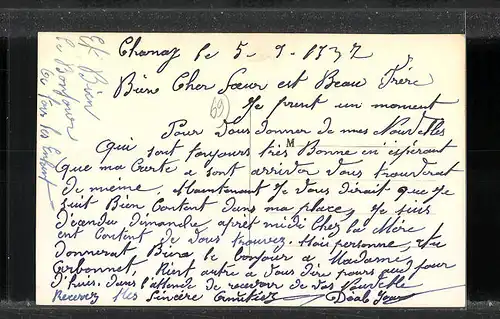 Et Bien
le Bonjour
Chanaz le 5-9-1937
Bien Cher Sœur est Beau Frère
Je prent un moment
69
Pour Vous donner de mes Nouvelles
M
Qui sont toujours très Bonne en espérant
Que ma Carte a son arrivée Vous trouverat
de même, Maintenant Je Vous dirait que Je
suit Bien Contant dans ma place, Je suis
décendu dimanche après midi Chez la Mère
est Content de Vous trouvez. Mais personne, tu
donnerat Bien le bonjour a Madame
Carbonnet, Rien autre a Vous dire pours
d'huis. dans l'attende de recevoir de Vos Nouvelle
Recevez Mes Sincère Amitiez